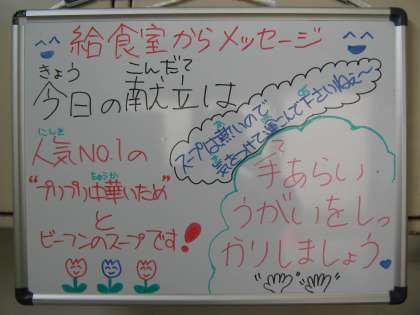 給食室からメッセージ
きょう こんだて
今日の献立は
スープは熱いので
気をつけて運んで下さいねぇ～
にんき
人気NO.1の
ちゅうか
"プリプリ中華いため"
と
ビーフンのスープです!
て
手あらい
うがいをしっ
かりしましょう